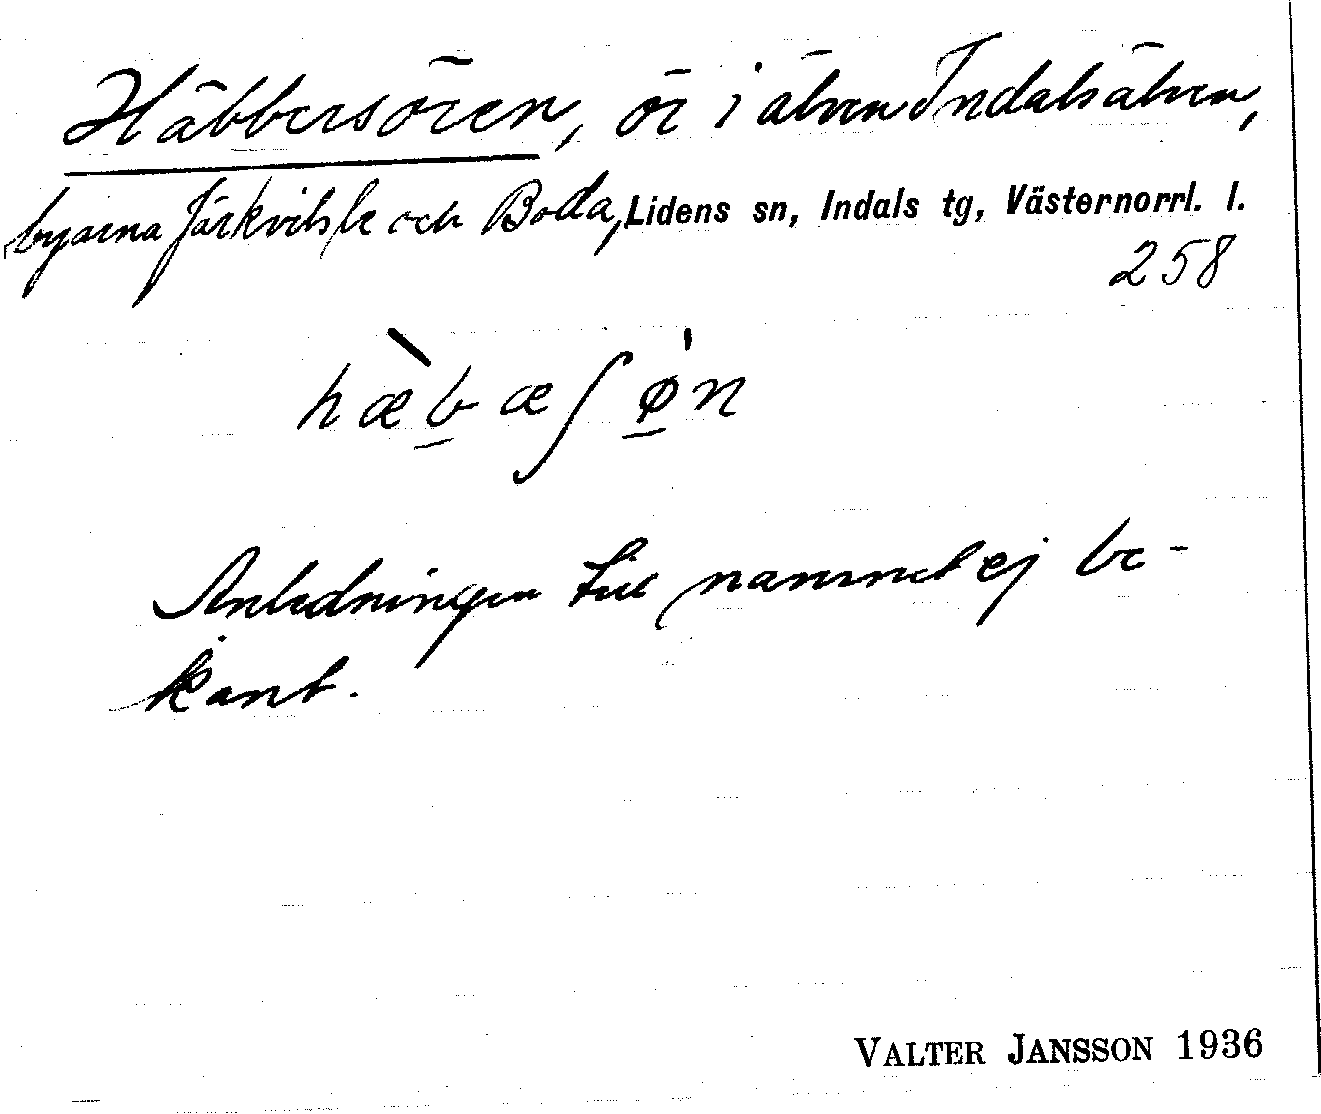 Häbbersören, ör i älven Indalsälven,
byarna Järkvitsle och Boda, Lidens sn, Indals tg, Västernorrl. l.
258
hæ̀b̲æʃø̲̍n
Anledningen till namnet ej be-
kant.
VALTER JANSSON 1936